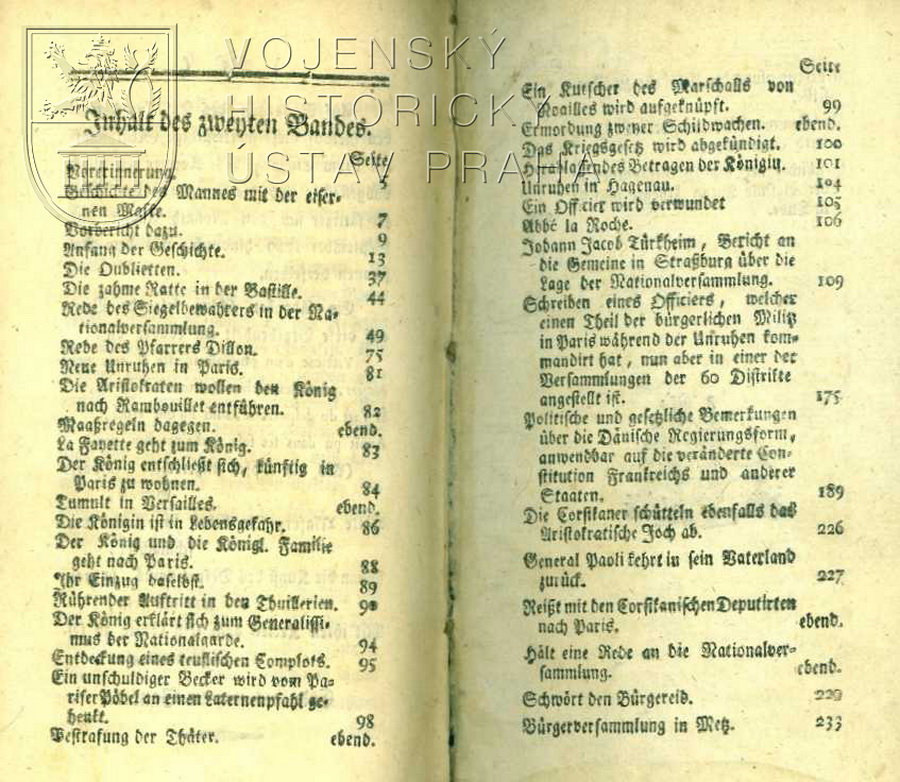 VOJENSKÝ
HISTORICKÝ
ÚSTAV PRAHA
Inhalt des zweyten Bandes.
Seite
Vorerinnerung. 5
Geschichte des Mannes mit der eiser-
nen Maske. 7
Vorbericht dazu. 9
Anfang der Geschichte. 13
Die Oublietten. 37
Die zahme Ratte in der Bastille. 44
Rede des Siegelbewahrers in der Na-
tionalversammlung. 49
Rede des Pfarrers Dillon. 75
Neue Unruhen in Paris. 81
Die Aristokraten wollen den König
nach Rambouillet entführen. 82
Maaßregeln dagegen. ebend.
La Fayette geht zum König. 83
Der König entschließt sich, künftig in
Paris zu wohnen. 84
Tumult in Versailles. ebend.
Die Königin ist in Lebensgefahr. 86
Der König und die Königl. Familie
geht nach Paris. 88
Ihr Einzug daselbst. 89
Rührender Auftritt in den Thuillerien. 90
Der König erklärt sich zum Generalissi-
mus der Nationalgarde. 94
Entdeckung eines teuflischen Complots. 95
Ein unschuldiger Becker wird vom Pa-
riser Pöbel an einen Laternenpfahl ge-
henkt. 98
Bestrafung der Thäter. ebend.
Seite
Ein Kutscher des Marschalls von
Noailles wird aufgeknüpft. 99
Ermordung zweyer Schildwachen. ebend.
Das Kriegsgesetz wird abgekündigt. 100
Herablassendes Betragen der Königin. 101
Unruhen in Hagenau. 104
Ein Officier wird verwundet 105
Abbé la Roche. 106
Johann Jacob Türkheim, Bericht an
die Gemeine in Straßburg über die
Lage der Nationalversammlung. 109
Schreiben eines Officiers, welcher
einen Theil der bürgerlichen Militz
in Paris während der Unruhen kom-
mandirt hat, nun aber in einer der
Versammlungen der 60 Distrikte
angestellt ist. 175
Politische und gesetzliche Bemerkungen
über die Dänische Regierungsform,
anwendbar auf die veränderte Con-
stitution Frankreichs und anderer
Staaten. 189
Die Corsikaner schütteln ebenfalls das
Aristokratische Joch ab. 226
General Paoli kehrt in sein Vaterland
zurück. 227
Reißt mit den Corsikanischen Deputirten
nach Paris. ebend.
Hält eine Rede an die Nationalver-
sammlung. ebend.
Schwört den Bürgereid. 229
Bürgerversammlung in Metz. 233